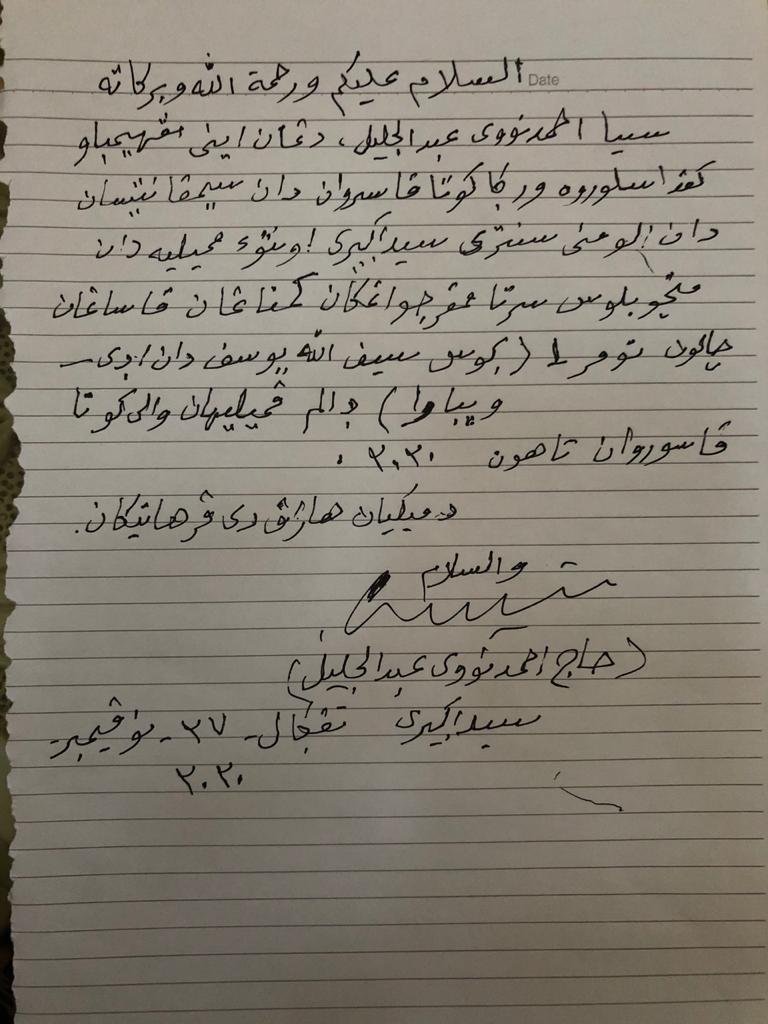 السلام عليكم ورحمة الله وبركاته
Date
سيا احمد نووى عبد الجليل، دڠان اينى مڠهيمباو
كفداسلوروه ورڬا كوتا ڤاسروان دان سيمڤاتيسان
دان الومنى سنترى سيداڬيرى اونتوء مميليه دان
منچوبلوس سرتا ممڤرجواڠكان كمناڠان ڤاساڠان
چالون نومر ١ (ڬوس سيف الله يوسف دان ادى
ويباوا) دالم ڤميليهان والى كوتا
ڤاسوروان تاهون ٢٠٢٠ .
دميكيان هارڤ دى ڤرهاتيكان.
والسلام
(حاج احمد نووى عبد الجليل)
سيداڬيرى تڠڬال - ٢٧ - نوڤيمبر -
٢٠٢٠